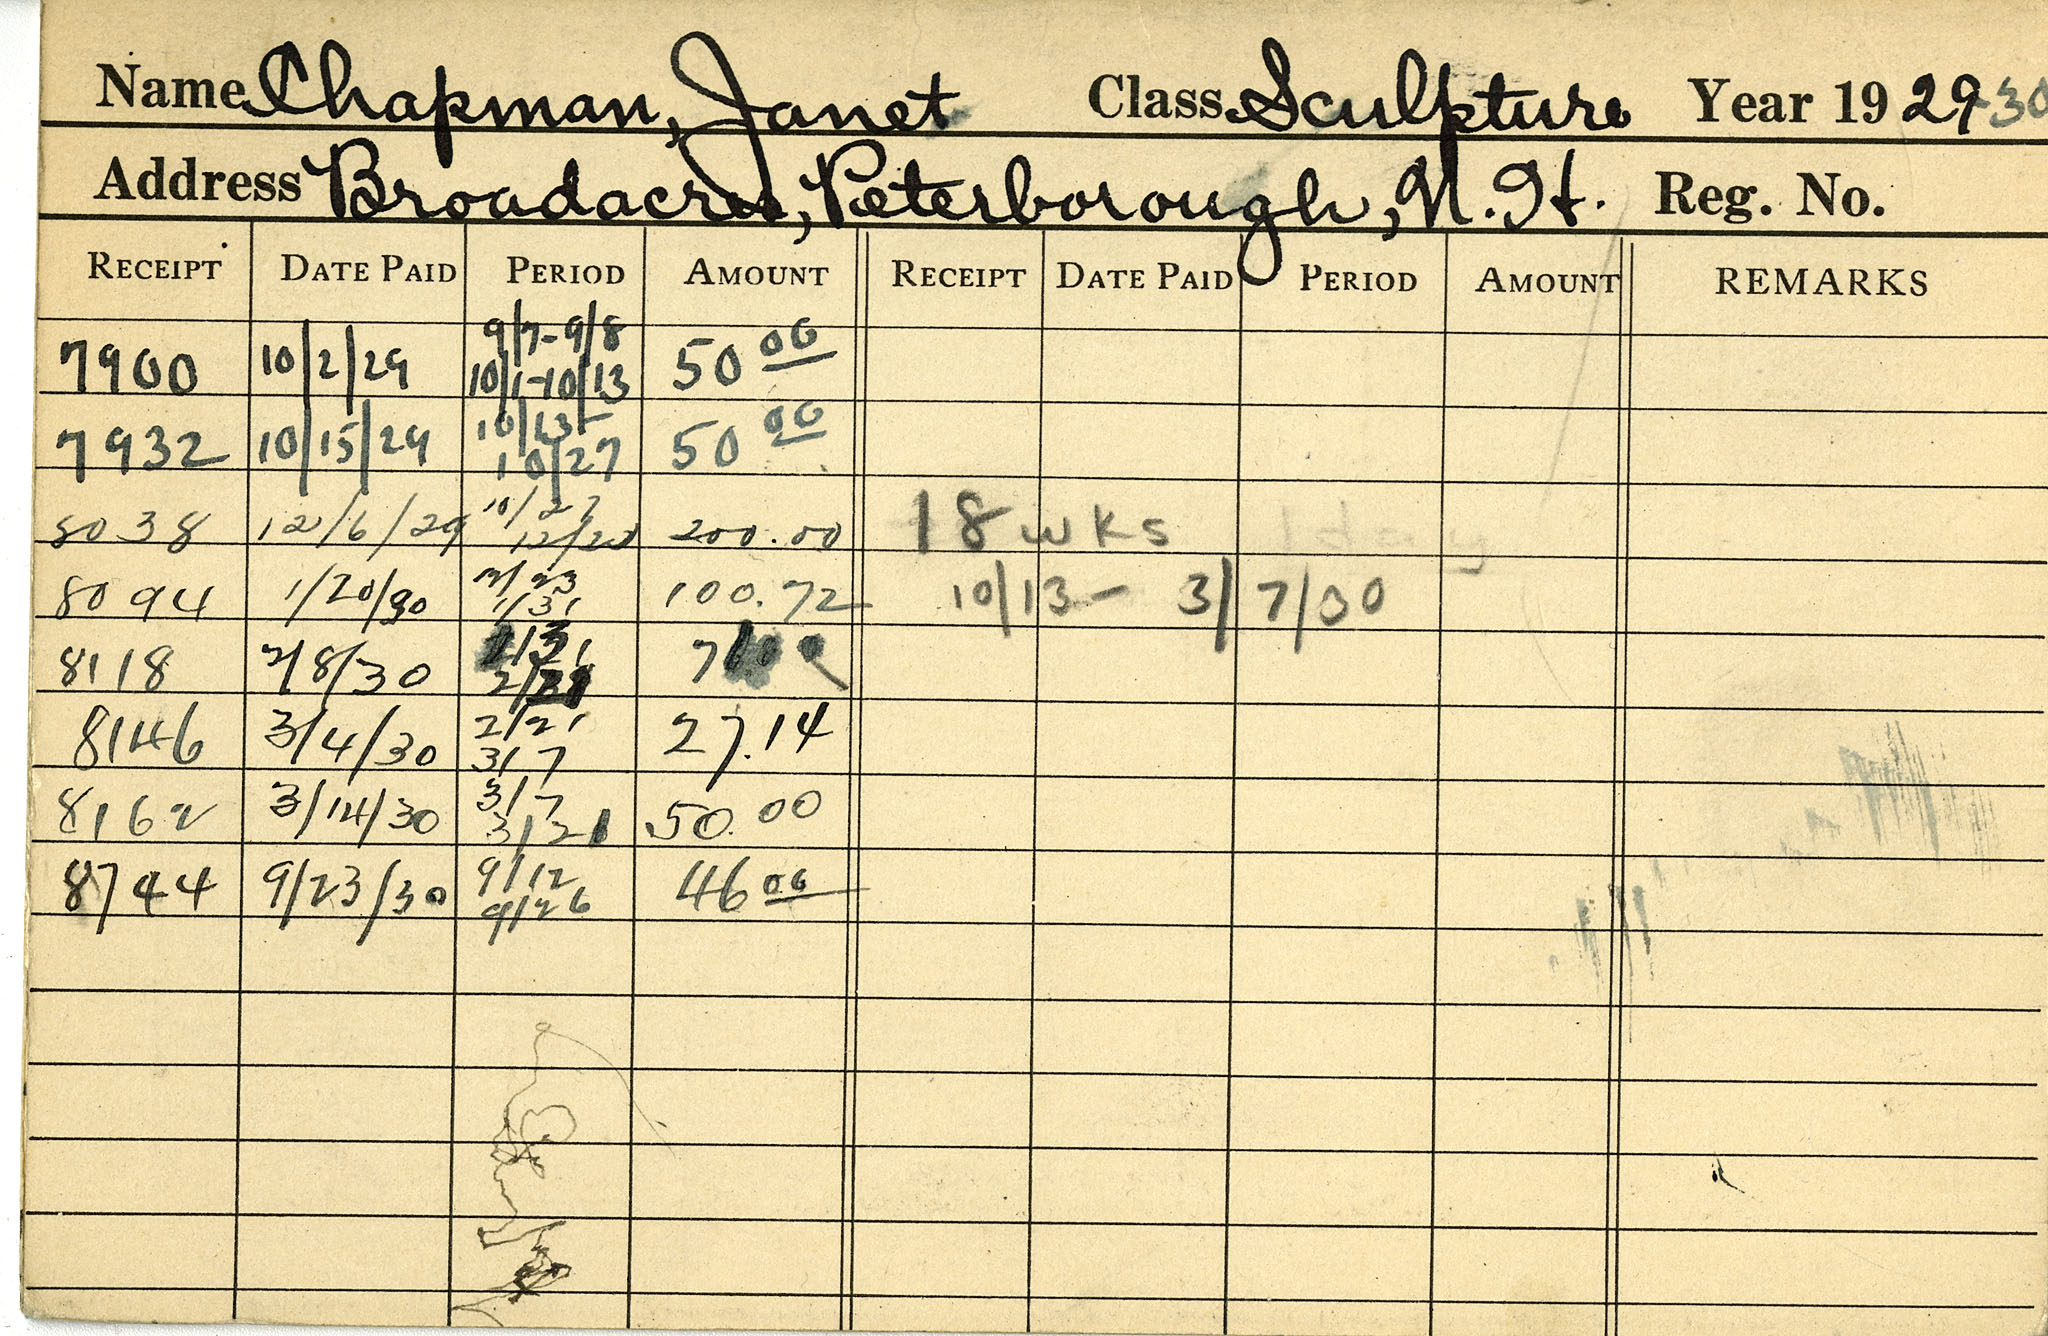 Name Chapman, Janet Class Sculpture Year 1929-30
Address Broadacres, Peterborough, N.H. Reg. No.
RECEIPT DATE PAID PERIOD AMOUNT RECEIPT DATE PAID PERIOD AMOUNT REMARKS
9/7-9/8
7900 10/2/29 10/1-10/13 50 00
10/13-
7932 10/15/29 10/27 50 00
10/27
8038 12/6/29 12/23 200.00 18 wks 1 day
8094 1/20/30 1/31 100.72 10/13- 3/7/30
1/31
8118 2/8/30 2/21
2/21
8146 3/4/30 3/7 27.14
3/7
8162 3/14/30 3/21 50.00
9/12
8744 9/23/30 9/26 46 00